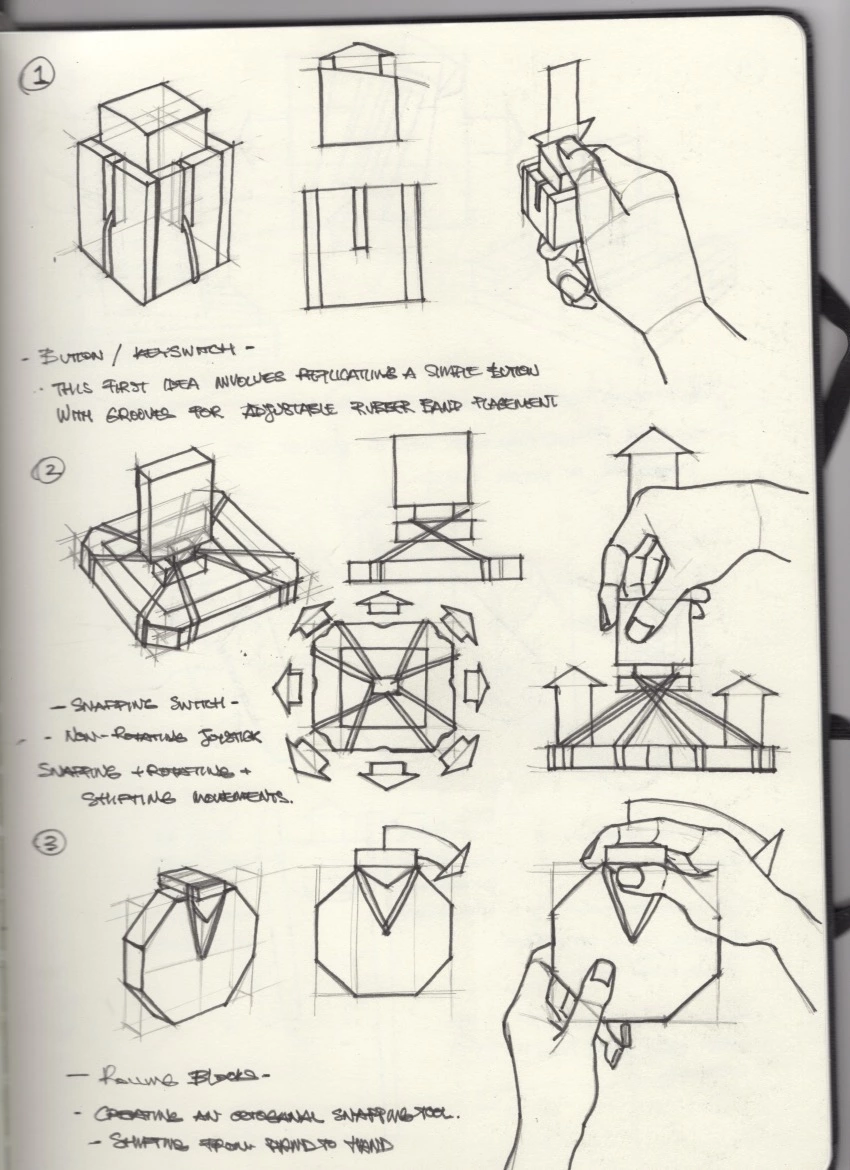 1
- BUTTON / KEYSWITCH -
- THIS FIRST IDEA INVOLVES REPLICATING A SIMPLE BUTTON
WITH GROOVES FOR ADJUSTABLE RUBBER BAND PLACEMENT
2
- SNAPPING SWITCH -
- NON-ROTATING JOYSTICK
SNAPPING + ROTATING +
SHIFTING MOVEMENTS.
3
- ROLLING BLOCKS -
- CREATING AN OCTOGANAL SNAPPING TOOL.
- SHIFTING FROM HAND TO HAND